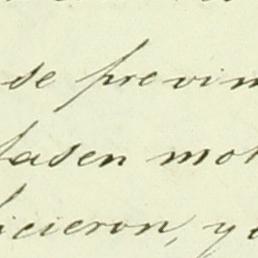 se previn
tasen mot
icieron, y